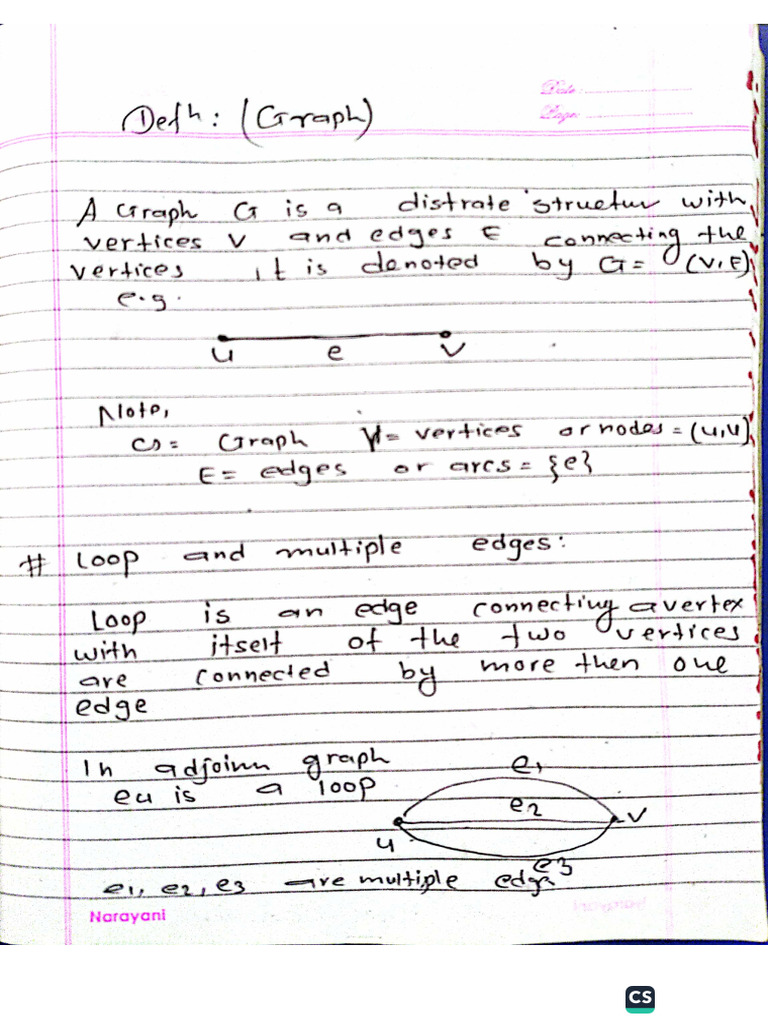 Date:
Page:
Defn: (Graph)
A Graph G is a distrate structur with
vertices V and edges E connecting the
vertices It is denoted by G= (V,E)
e.g.
u e v
Note,
G= Graph V= vertices or nodes = (u,v)
E= edges or arcs = {e}
# Loop and multiple edges:
Loop is an edge connecting a vertex
with itself of the two vertices
are connected by more then one
edge
In adjoinn graph
e4 is a loop
e1
e2
u v
e3
e1, e2, e3 are multiple edge
Narayani
CS